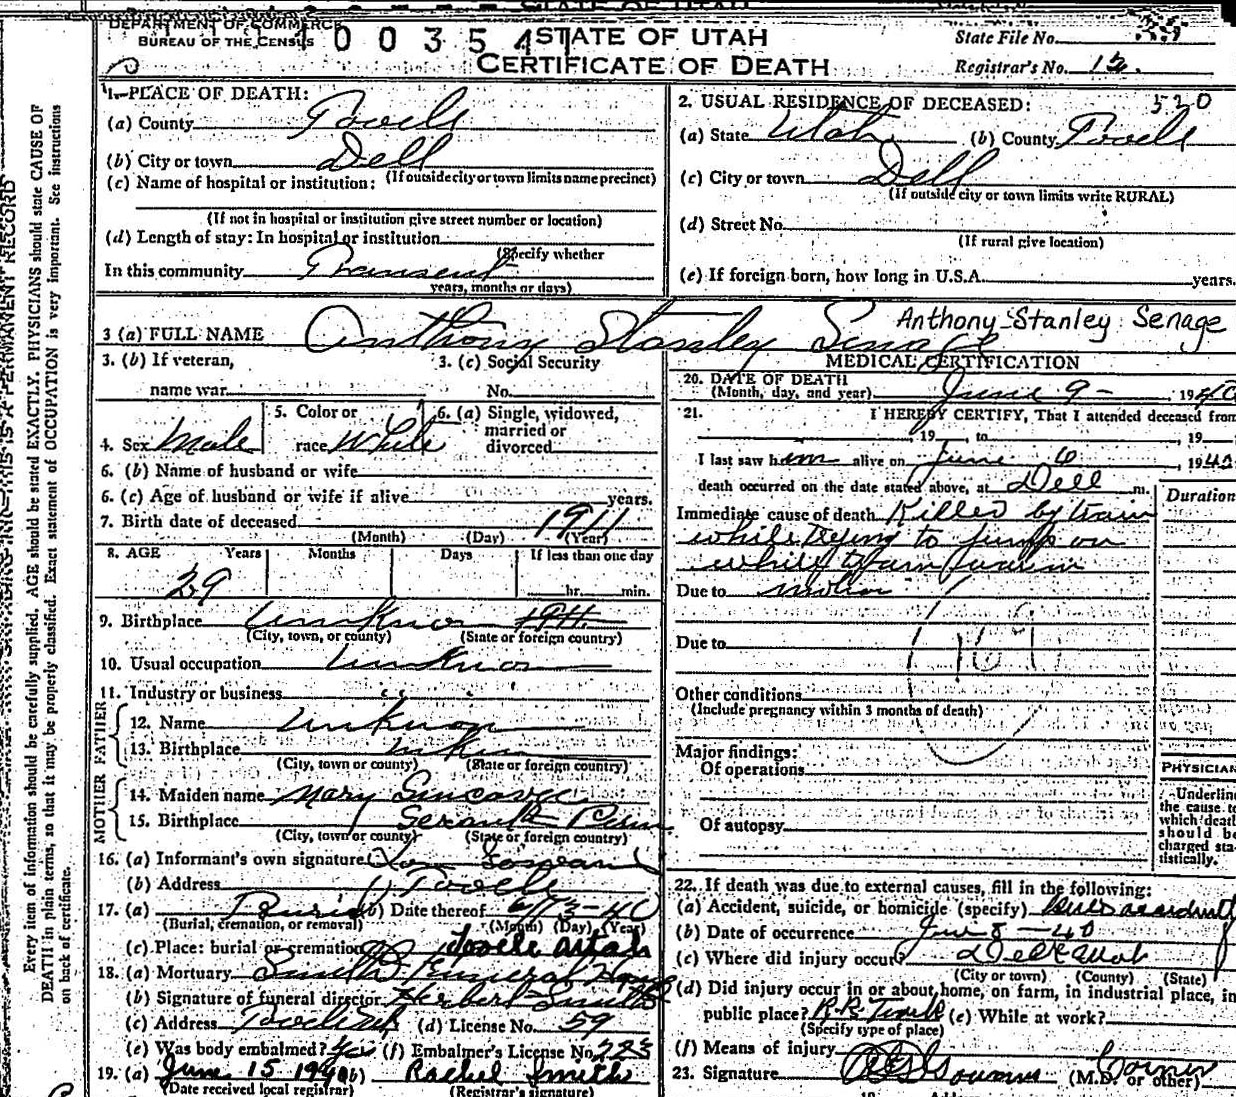 STATE OF UTAH
DEPARTMENT OF COMMERCE
BUREAU OF THE CENSUS
STATE OF UTAH
CERTIFICATE OF DEATH
State File No.
Registrar's No. 15.
1. PLACE OF DEATH:
(a) County Tooele
(b) City or town Dell
(If outside city or town limits name precinct)
(c) Name of hospital or institution:
(If not in hospital or institution give street number or location)
(d) Length of stay: In hospital or institution
(Specify whether
In this community
years, months or days)
2. USUAL RESIDENCE OF DECEASED: 520
(a) State Utah (b) County Tooele
(c) City or town Dell
(If outside city or town limits write RURAL)
(d) Street No.
(If rural give location)
(e) If foreign born, how long in U.S.A. years.
3 (a) FULL NAME Anthony Stanley Senage
Anthony Stanley Senage
3. (b) If veteran, name war
3. (c) Social Security No.
4. Sex Male
5. Color or race White
6. (a) Single, widowed, married or divorced
6. (b) Name of husband or wife
6. (c) Age of husband or wife if alive years.
7. Birth date of deceased 1911
(Month) (Day) (Year)
8. AGE Years Months Days If less than one day
29 hr. min.
9. Birthplace Unknon
(City, town, or county) (State or foreign country)
10. Usual occupation Unknon
11. Industry or business " "
FATHER
12. Name Unknon
13. Birthplace
(City, town or county) (State or foreign country)
MOTHER
14. Maiden name Mary
15. Birthplace
(City, town or county) (State or foreign country)
16. (a) Informant's own signature
(b) Address Tooele
17. (a) Burial (b) Date thereof 6/13-40
(Burial, cremation, or removal) (Month) (Day) (Year)
(c) Place: burial or cremation Tooele Utah
18. (a) Mortuary Smith Funeral Home
(b) Signature of funeral director Herbert Smith
(c) Address Tooele Utah (d) License No. 59
(e) Was body embalmed? Yes (f) Embalmer's License No. 223
19. (a) June 15 1940 (b) Rachel Smith
(Date received local registrar) (Registrar's signature)
MEDICAL CERTIFICATION
20. DATE OF DEATH
(Month, day, and year) June 9- , 1940
21. I HEREBY CERTIFY, That I attended deceased from
, 19 , to , 19
I last saw him alive on June 6 , 1940
death occurred on the date stated above, at Dell m.
Immediate cause of death Killed by train
while trying to jump on
while train was in
Due to motion
Due to
169
Other conditions
(Include pregnancy within 3 months of death)
Major findings:
Of operations
Of autopsy
Duration
PHYSICIAN
Underline
the cause to
which death
should be
charged sta-
tistically.
22. If death was due to external causes, fill in the following:
(a) Accident, suicide, or homicide (specify)
(b) Date of occurrence June 8-40
(c) Where did injury occur? Dell Utah
(City or town) (County) (State)
(d) Did injury occur in or about home, on farm, in industrial place, in
public place? R.R. (e) While at work?
(Specify type of place)
(f) Means of injury
23. Signature (M.D. or other)
Every item of information should be carefully supplied. AGE should be stated EXACTLY. PHYSICIANS should state CAUSE OF
DEATH in plain terms, so that it may be properly classified. Exact statement of OCCUPATION is very important. See instructions
on back of certificate.